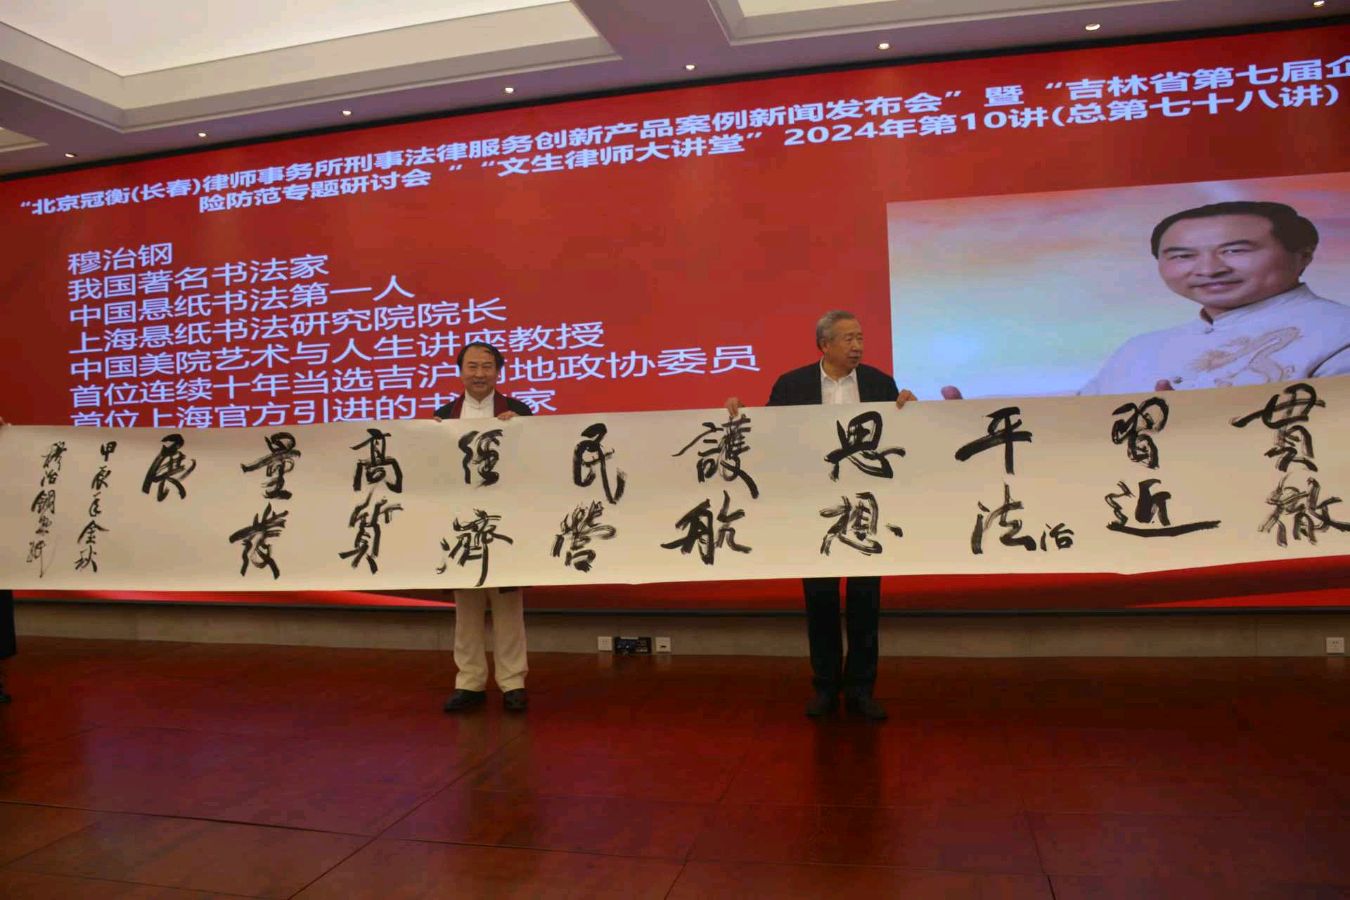 “北京冠衡(长春)律师事务所刑事法律服务创新产品案例新闻发布会” 暨 “吉林省第七届企
险防范专题研讨会 “ “文生律师大讲堂” 2024年第10讲(总第七十八讲)
穆治钢
我国著名书法家
中国悬纸书法第一人
上海悬纸书法研究院院长
中国美院艺术与人生讲座教授
首位连续十年当选吉沪两地政协委员
首位上海官方引进的书法家
貫徹
習近
平法治
思想
護航
民營
經濟
高質
量發
展
甲辰年金秋
穆治鋼懸紙